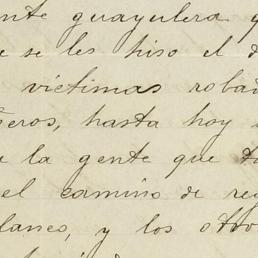 nte guayulera q
e se les hiso el d
victimas roba
eros, hasta hoy
a la gente que to
el camino de reg
lanco, y los otro